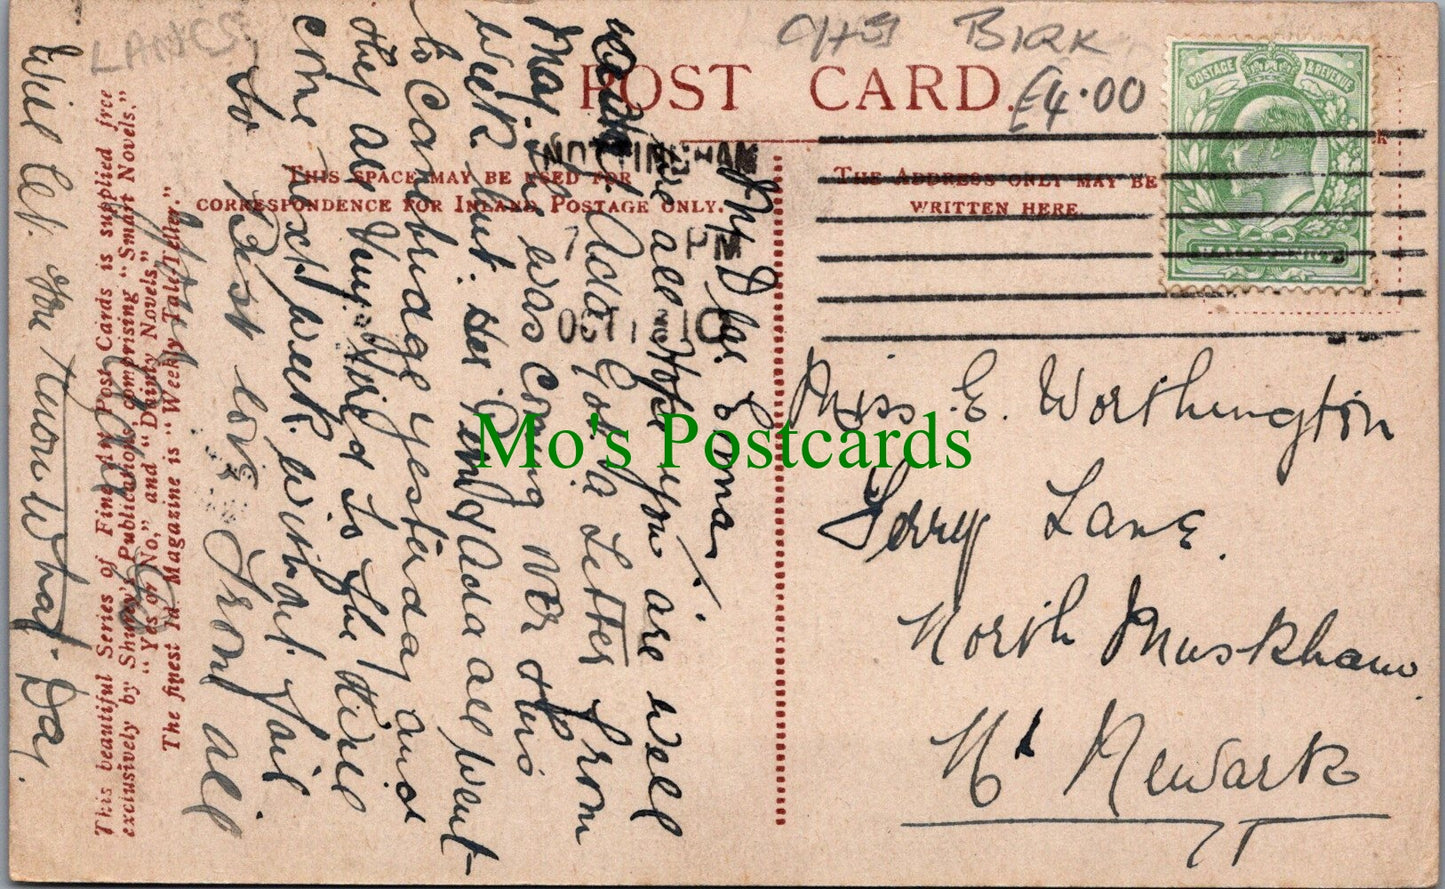 LANCS
CHS BIRK
£4.00
POST CARD.
THIS SPACE MAY BE USED FOR
CORRESPONDENCE FOR INLAND POSTAGE ONLY.
THE ADDRESS ONLY MAY BE
WRITTEN HERE.
POSTAGE & REVENUE
HALFPENNY
NOTTINGHAM
7 PM
OCT 13 10
My Dear Edna
we all Hope you are well
and Ada Got a Letter from
May. she was coming over this
week but Her Pim & Ada all went
to Cambridge yesterday and
they are Trying Hard to the
come next week without fail
so Best love From all
Will let you know What Day.
Miss E. Worthington
Ferry Lane.
North Muskham
Nr Newark
This beautiful Series of Fine Art Post Cards is supplied free
exclusively by Shurey's Publications, comprising "Smart Novels,"
"Yes or No," and "Dainty Novels."
The finest 1d. Magazine is "Weekly Tale-Teller."
Mo's Postcards